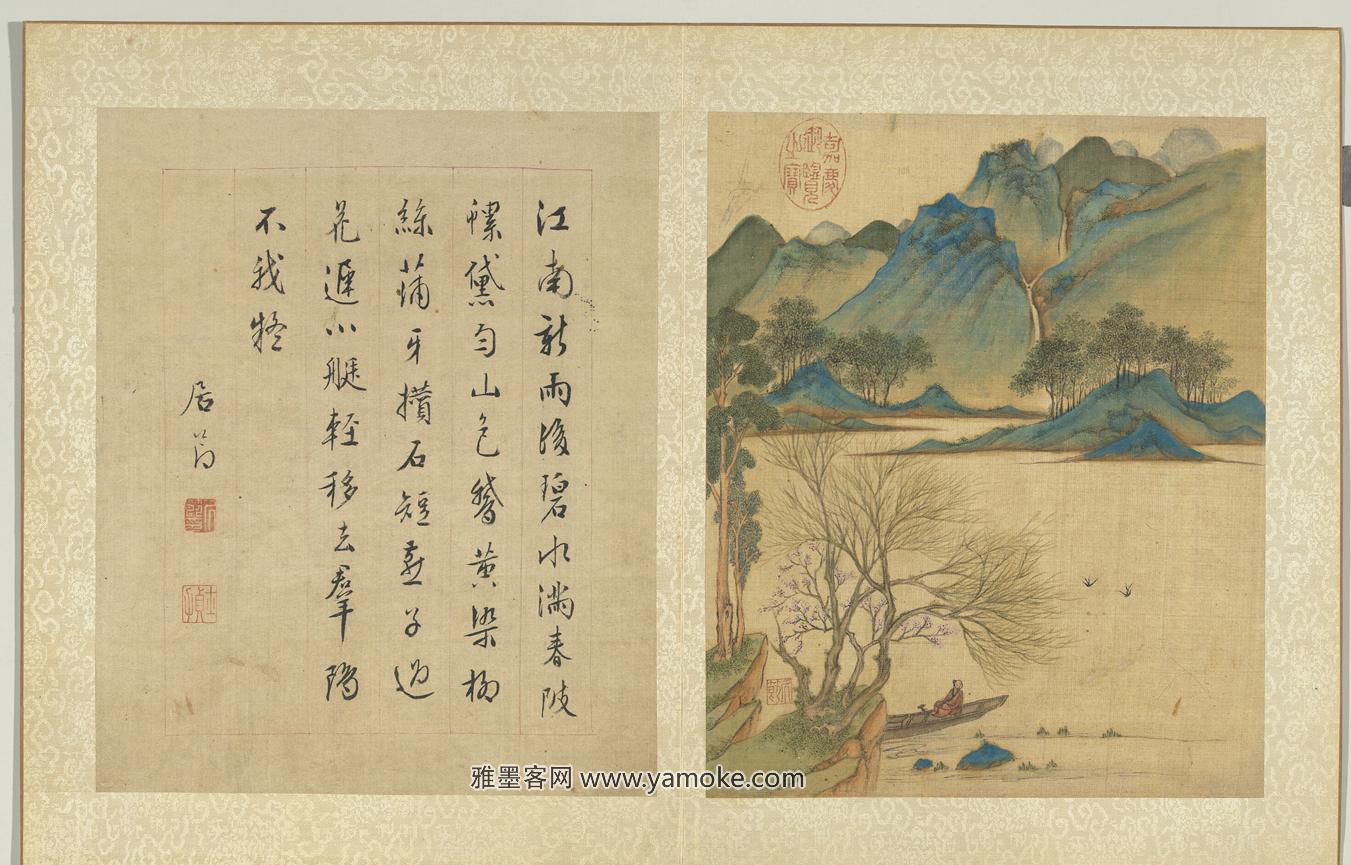 江南新雨後碧水滿春陂
螺黛勻山色鵝黃染柳
絲蒲牙攢石短燕子過
花遲小艇輕移去羣鷗
不我疑
居翁
嘉慶御覽之寶
雅墨客网 www.yamoke.com